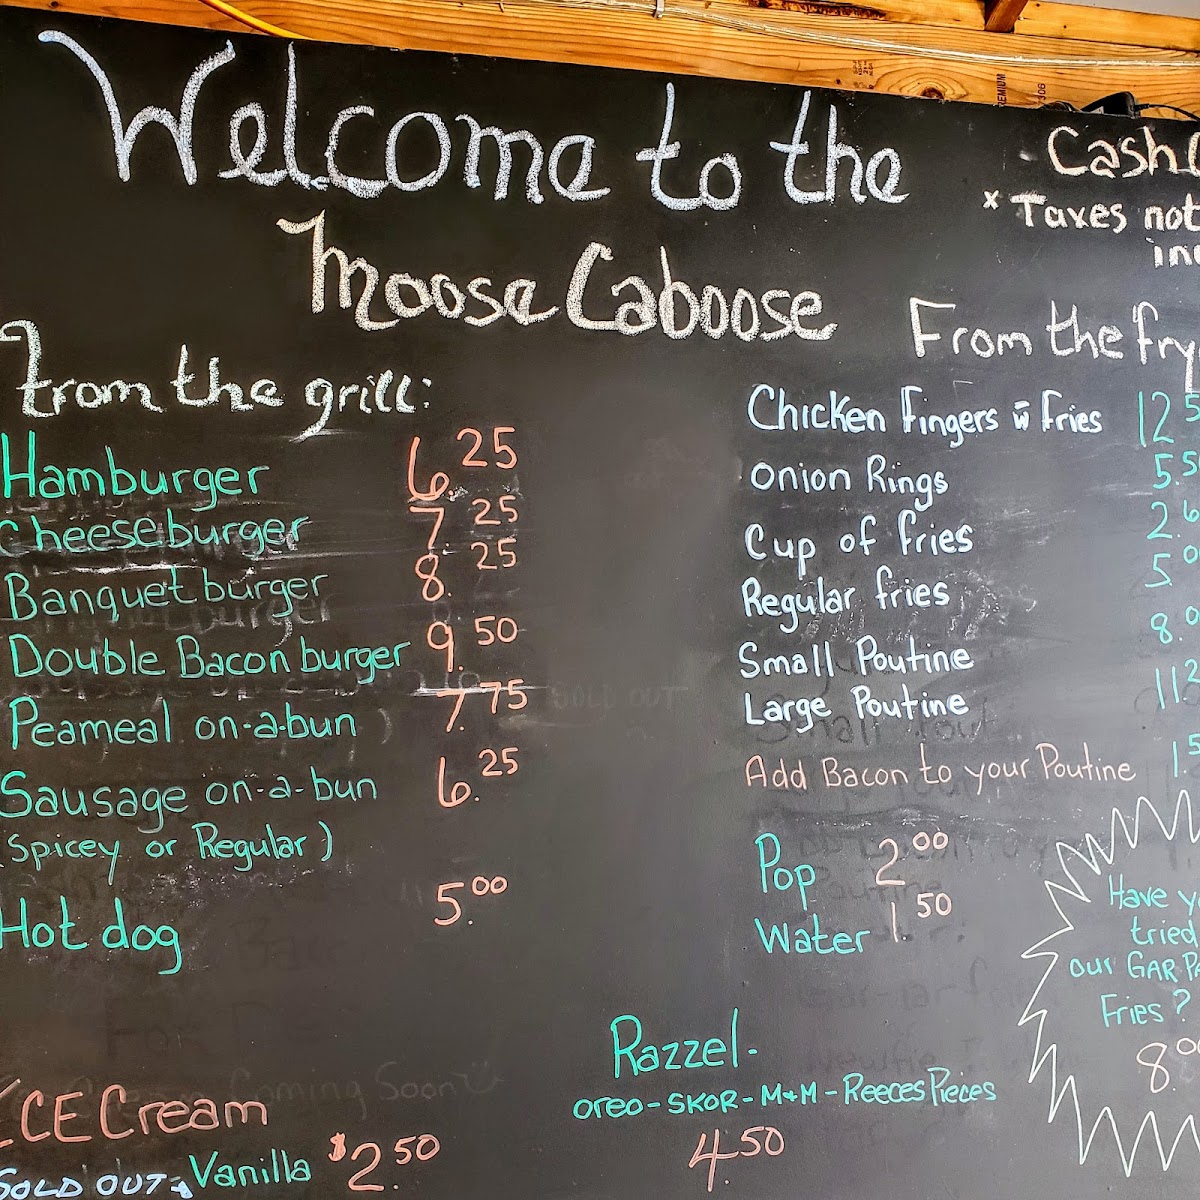 Welcome to the
Moose Caboose
Cash
* Taxes not
From the grill:
Hamburger 6.25
Cheeseburger 7.25
Banquet burger 8.25
Double Bacon burger 9.50
Peameal on-a-bun 7.75
Sausage on-a-bun 6.25
(Spicey or Regular)
Hot dog 5.00
ICE Cream
SOLD OUT Vanilla $2.50
From the fry
Chicken Fingers w Fries 12.5
Onion Rings 5.50
Cup of fries 2.6
Regular fries 5.0
Small Poutine 8.0
Large Poutine 11.2
Add Bacon to your Poutine 1.5
Pop 2.00
Water 1.50
Have
tried
our GAR
Fries?
8.00
Razzel-
oreo-SKOR-M+M-Reeces Pieces
4.50
SOLD OUT
Coming Soon
PREMIUM